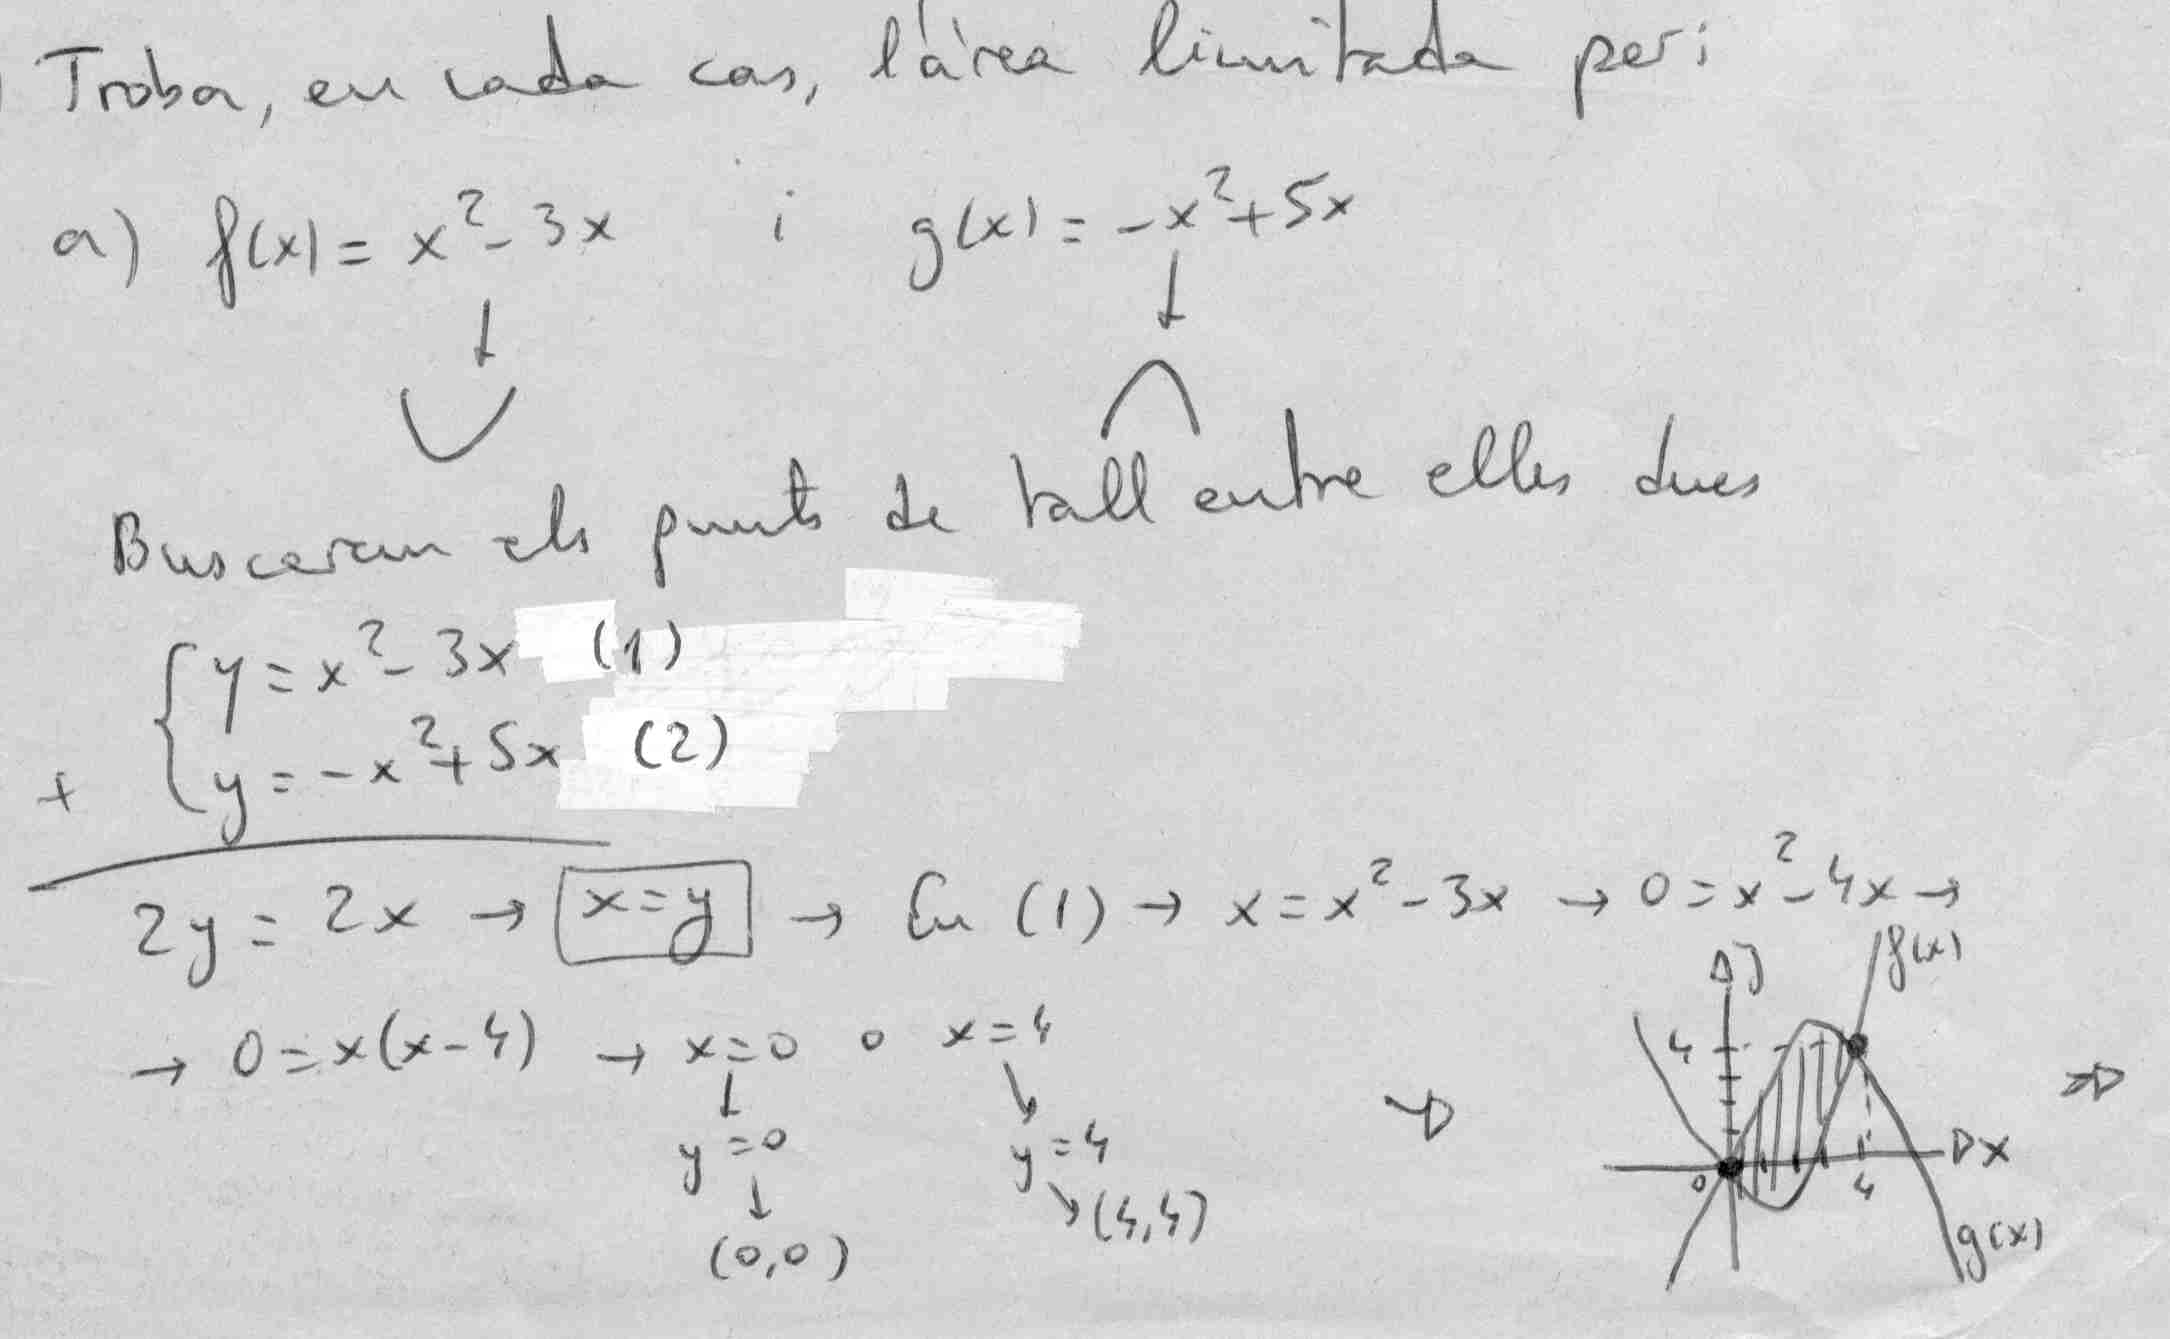 Troba, en cada cas, l'àrea limitada per:
a) f(x) = x² - 3x i g(x) = -x² + 5x
Buscarem els punts de tall entre elles dues
y = x² - 3x (1)
+ y = -x² + 5x (2)
2y = 2x → x = y → En (1) → x = x² - 3x → 0 = x² - 4x →
→ 0 = x(x - 4) → x = 0 o x = 4
y = 0 y = 4
(0,0) (4,4)
y f(x)
4
x
0 4
g(x)